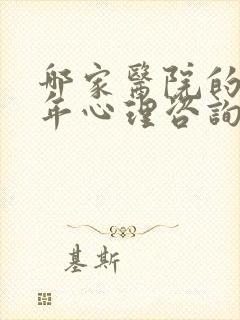 哪家醫院的
年心理咨詢
基斯